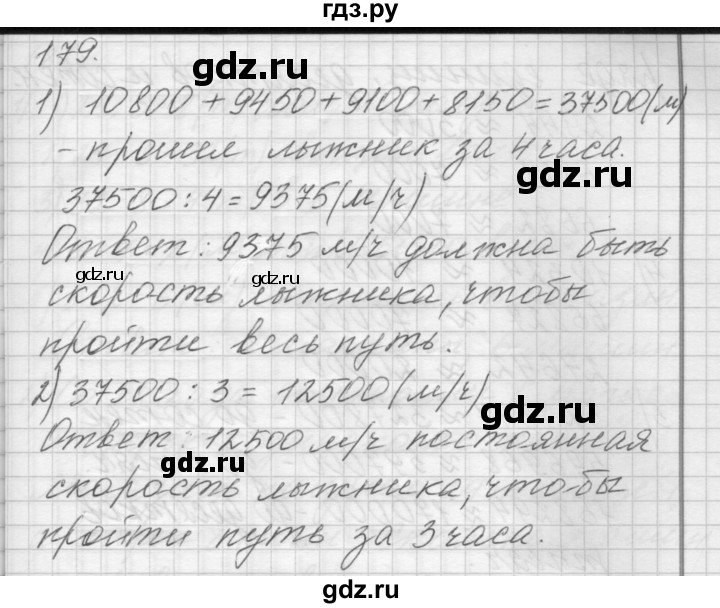 гдз.ру
179.
1) 10800 + 9450 + 9100 + 8150 = 37500 (м)
- прошел лыжник за 4 часа.
gdz.ru
37500 : 4 = 9375 (м/ч)
Ответ: 9375 м/ч должна быть
gdz.ru
gdz.ru
скорость лыжника, чтобы
пройти весь путь.
2) 37500 : 3 = 12500 (м/ч)
gdz.ru
Ответ: 12500 м/ч постоянная
gdz.ru
скорость лыжника, что-бы
пройти путь за 3 часа.
gdz.ru